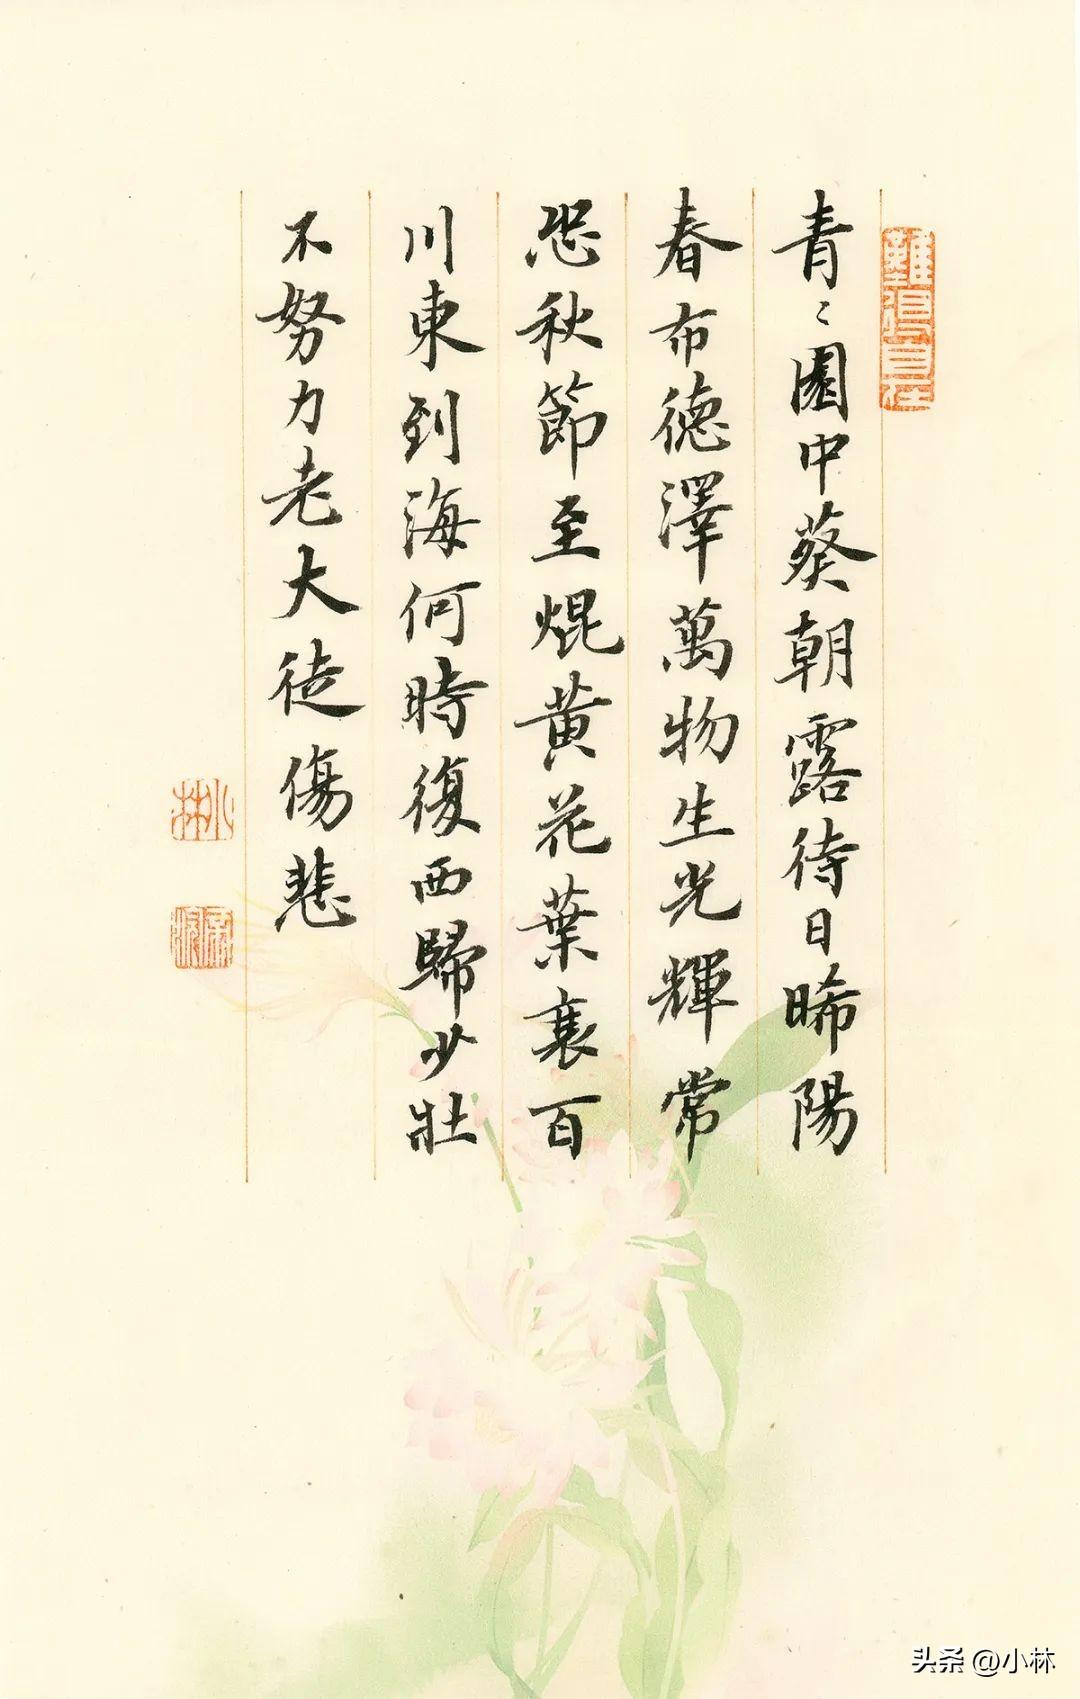 難得自在
青〻園中葵朝露待日晞陽
春布德澤萬物生光輝常
恐秋節至焜黄花葉衰百
川東到海何時復西歸少壯
不努力老大徒傷悲
小林
头条 @小林